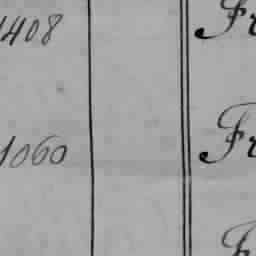 1408 Fr
1060 Fr
Fr